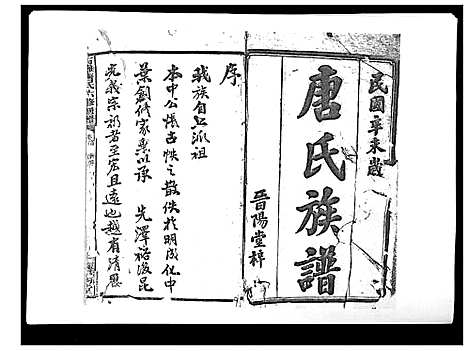 民國辛未歲
唐氏族譜
晉陽堂梓
序
我族自上派祖
本中公悵古帙之散佚於明成化中
葉創修家乘以承　先澤裕後昆
光義宗祊者至宏且遠也越有清